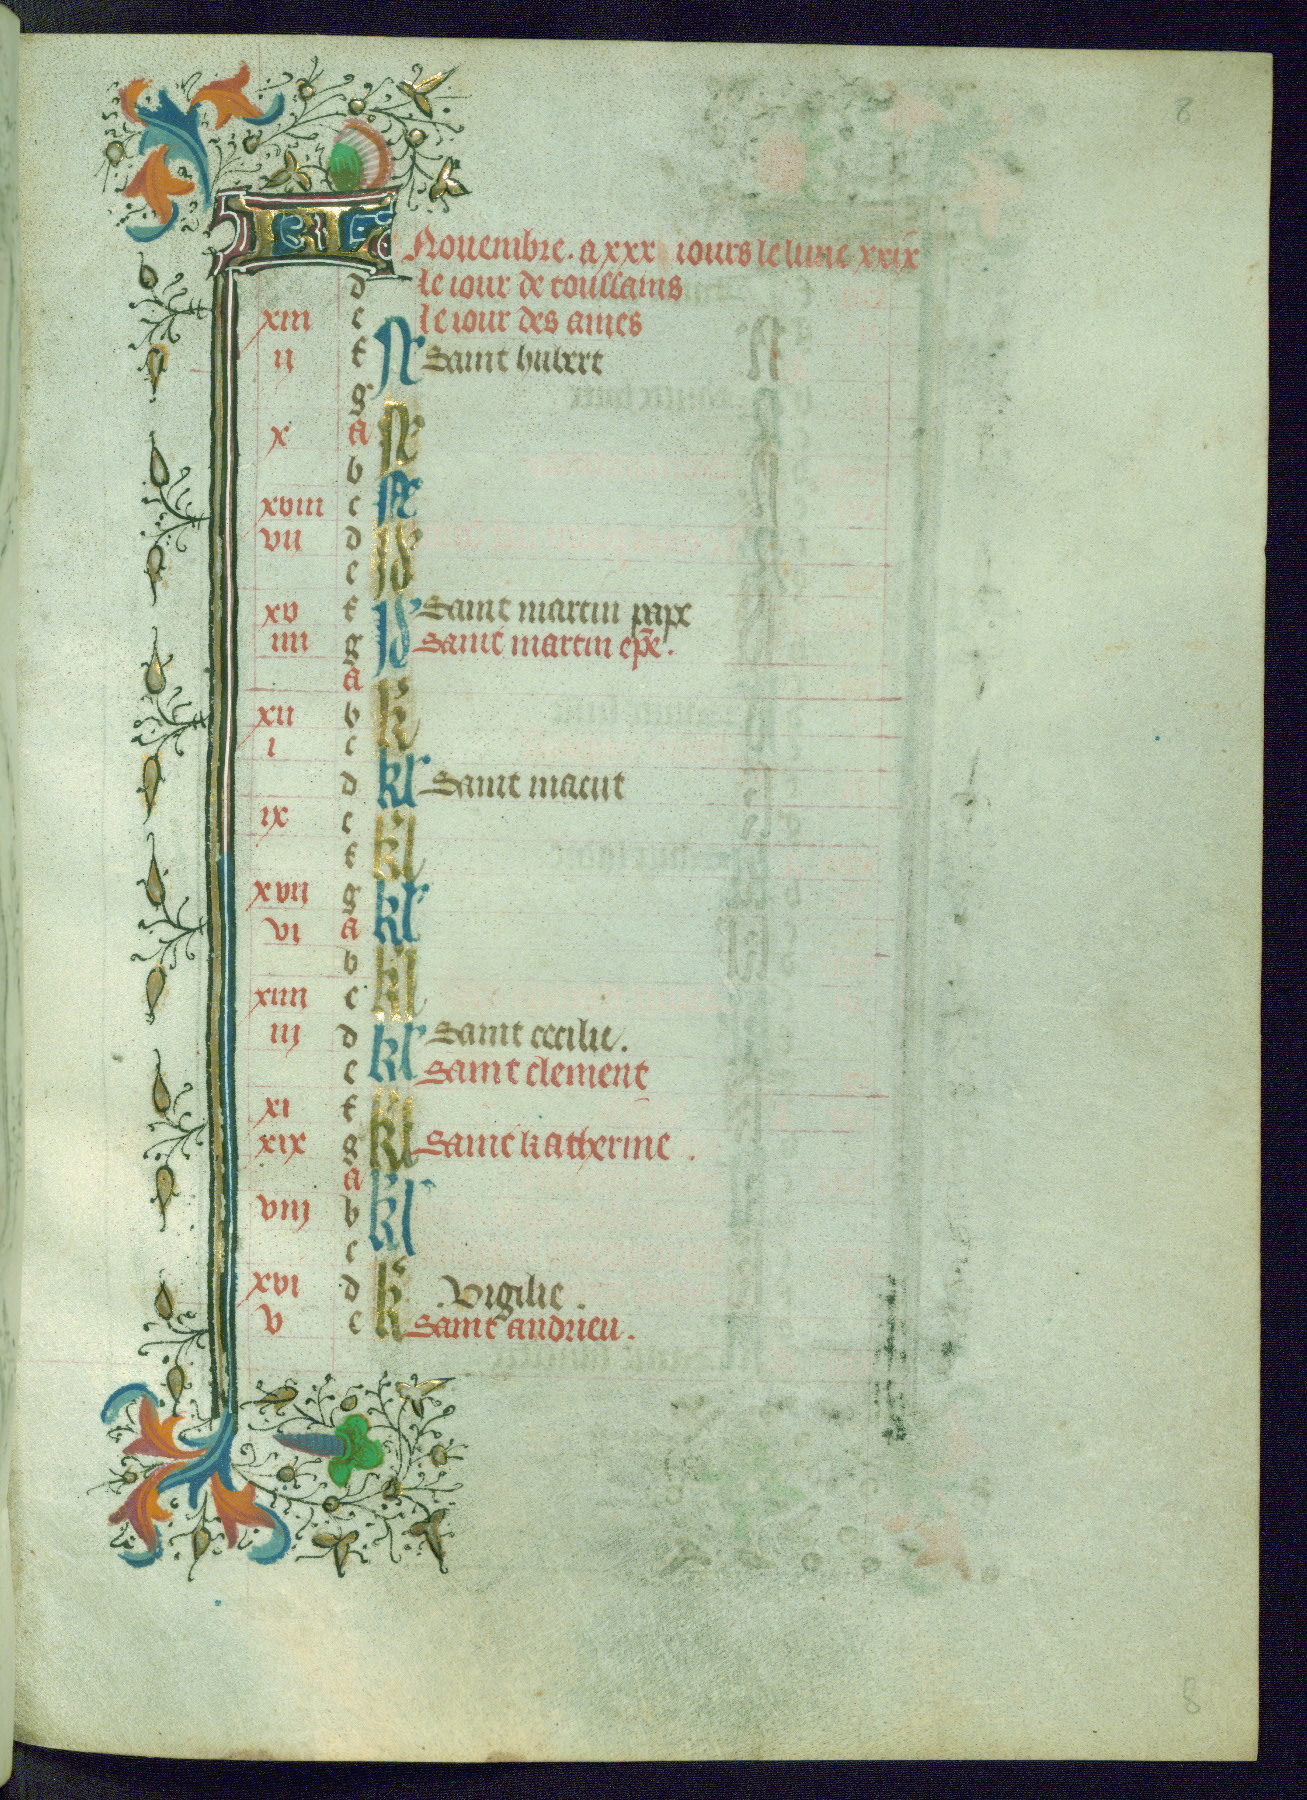 8
kl Nouembre. a xxx iours le lune xxix
d le iour de toussains
xiii e le iour des ames
ii f N Saint hubert
g
x A N
b
xviii c N
vii d Id
e
xv f Id Saint martin pape
iiii g Saint martin epẽ.
A
xii b k
i c
d kl Saint macut
ix e
f kl
xvii g kl
vi A
b kl
xiiii c
iij d kl Saint cecilie.
e Saint clement
xi f kl
xix g Saint katherine .
A kl
viij b
c
xvi d k . Vigilie .
v e Saint andrieu.
8